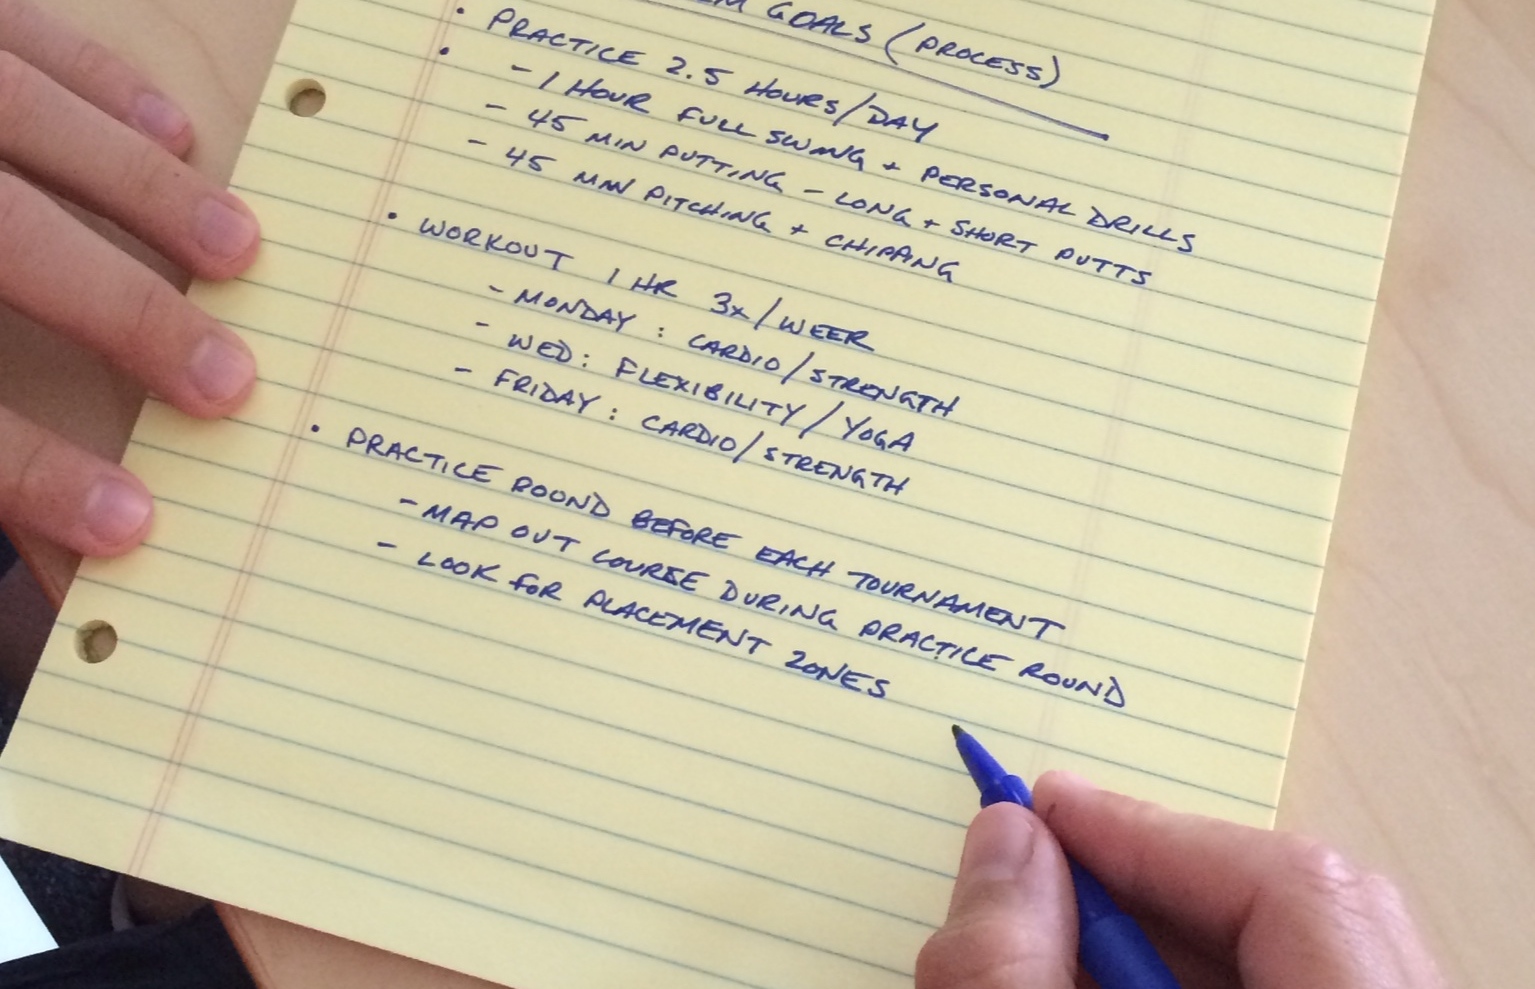 GOALS (PROCESS)
• PRACTICE 2.5 HOURS/DAY
• - 1 HOUR FULL SWING + PERSONAL DRILLS
- 45 MIN PUTTING - LONG + SHORT PUTTS
- 45 MIN PITCHING + CHIPPING
• WORKOUT 1 HR 3x/WEEK
- MONDAY : CARDIO/STRENGTH
- WED : FLEXIBILITY/YOGA
- FRIDAY : CARDIO/STRENGTH
• PRACTICE ROUND BEFORE EACH TOURNAMENT
- MAP OUT COURSE DURING PRACTICE ROUND
- LOOK FOR PLACEMENT ZONES